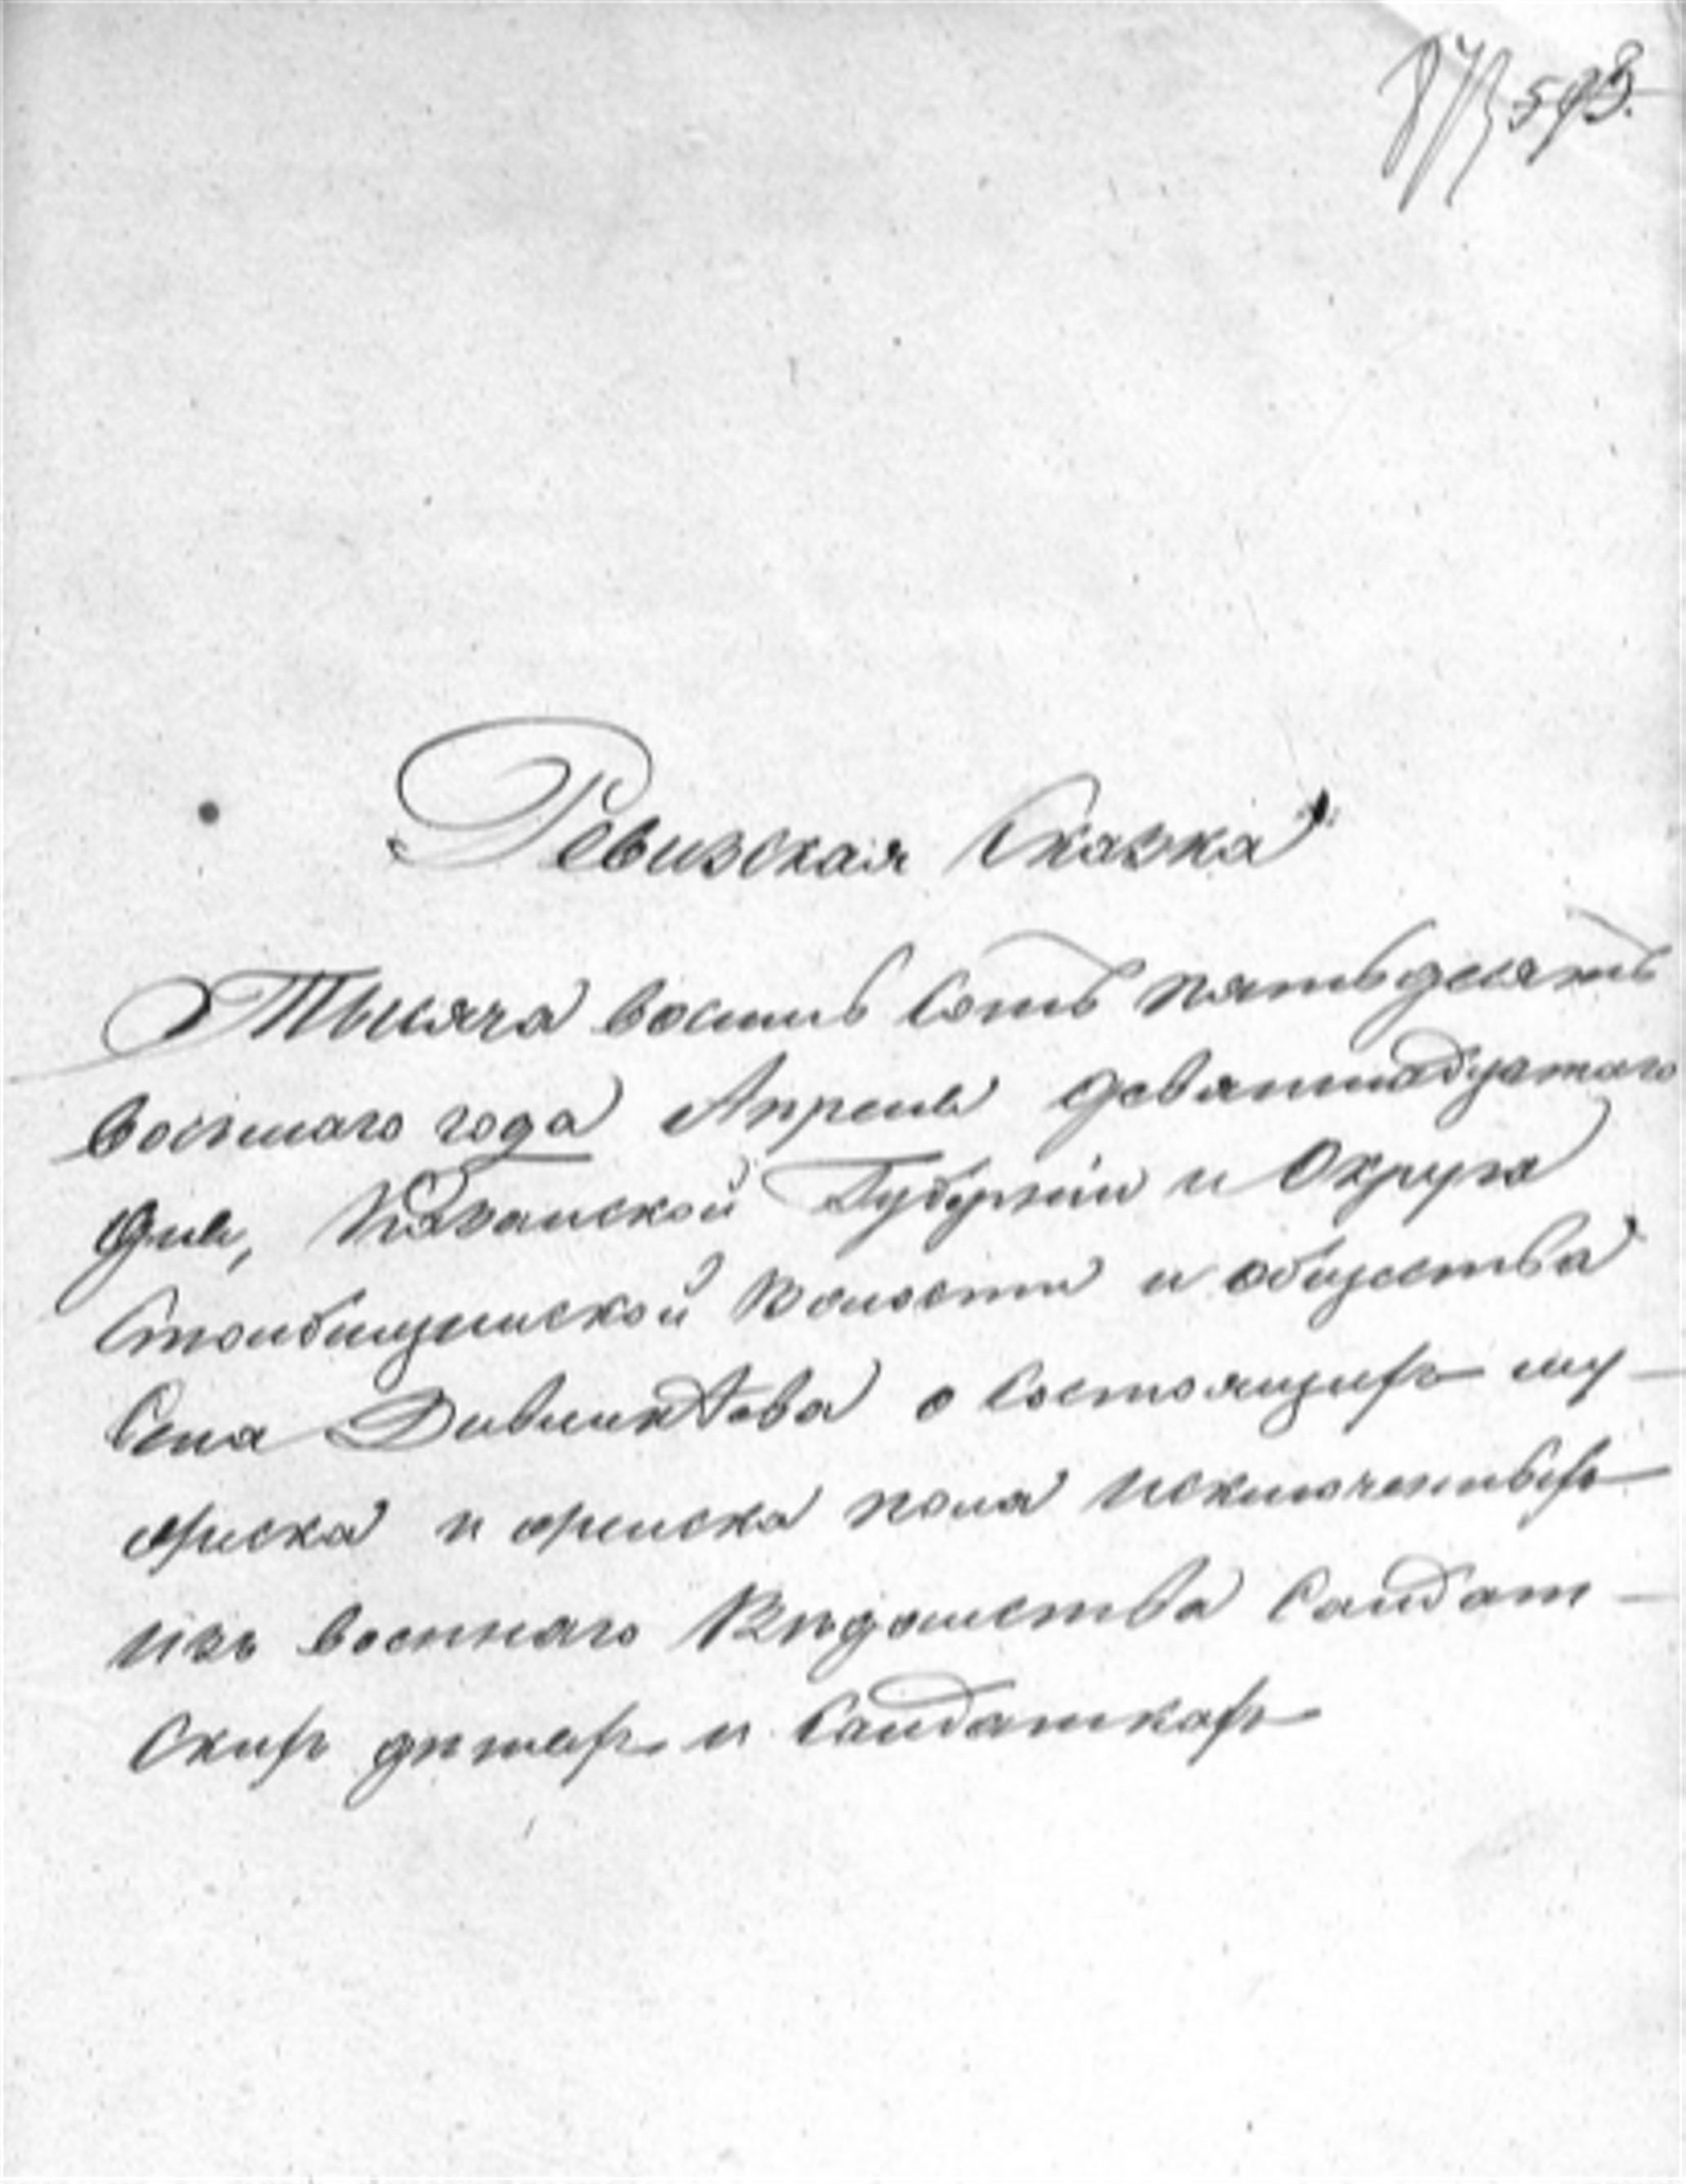 593.
Ревизская Сказка
Тысяча восемь сотъ пятьдесятъ
восьмаго года Апреля девятнадцатаго
дня, Казанской Губерніи и Округа
Столбищинской Волости и общества
Села Девликѣева о состоящихъ му-
жеска и женска пола исключенныхъ
изъ военнаго Вѣдомства Солдат-
скихъ дѣтяхъ и Солдаткахъ